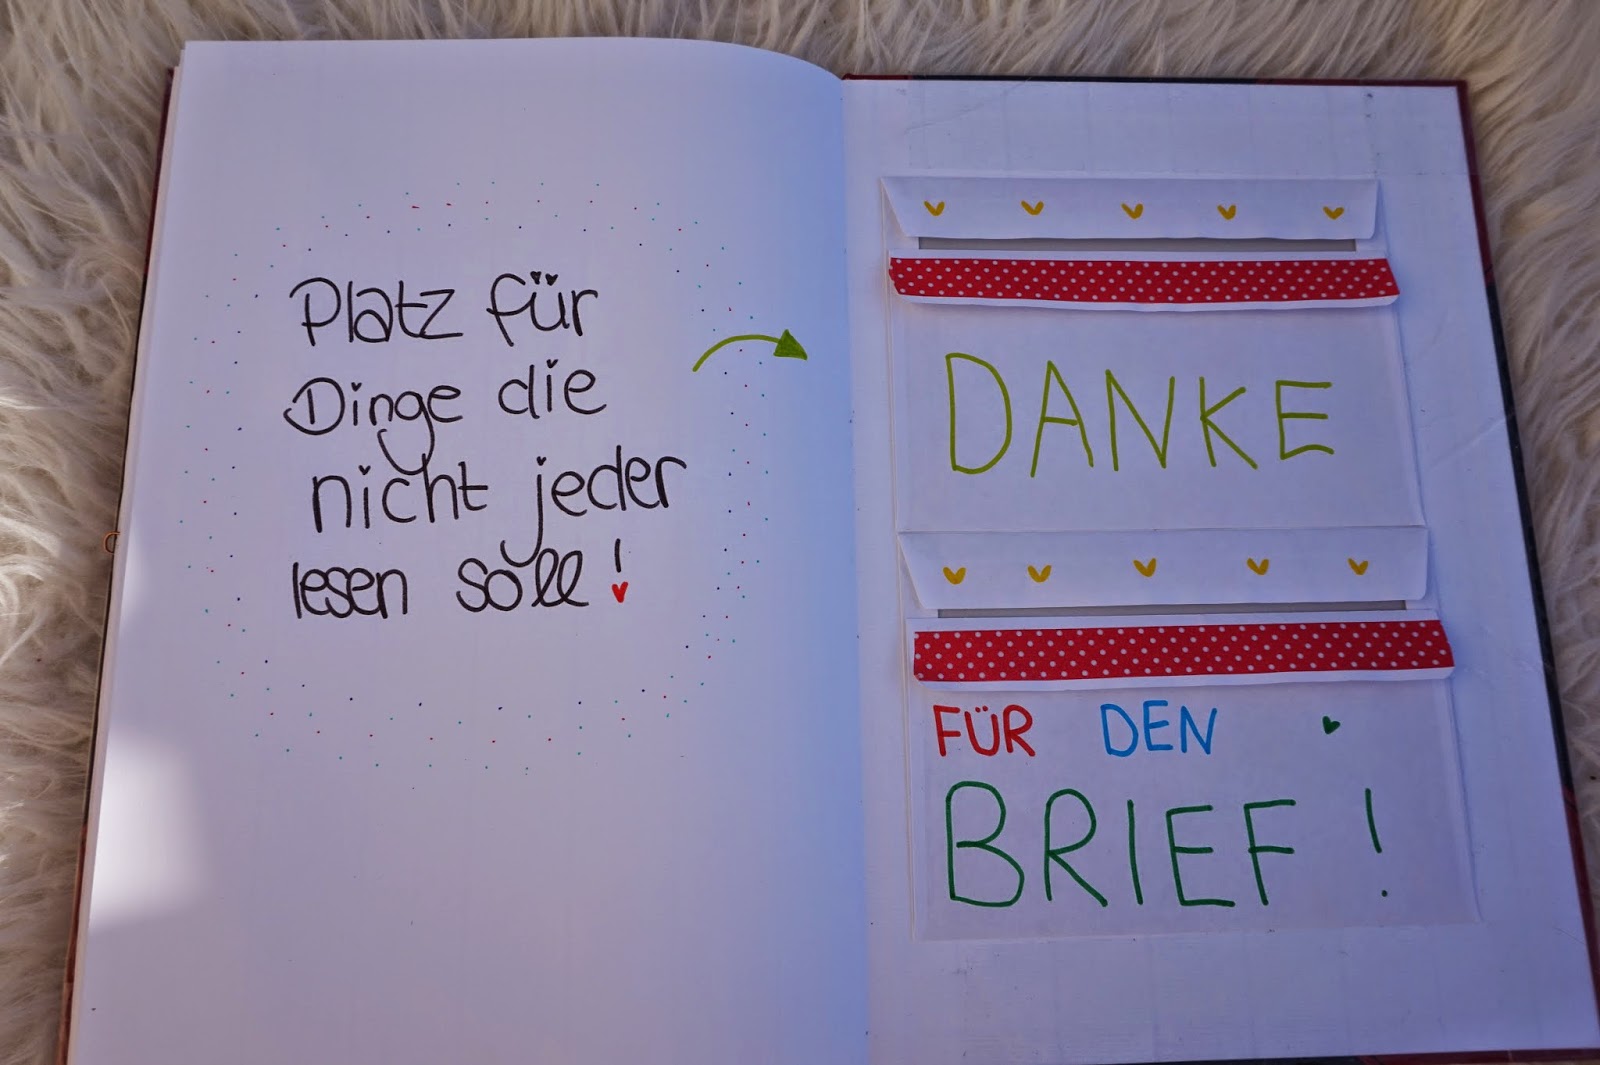 Platz für
Dinge die
nicht jeder
lesen soll!
DANKE
FÜR DEN
BRIEF!